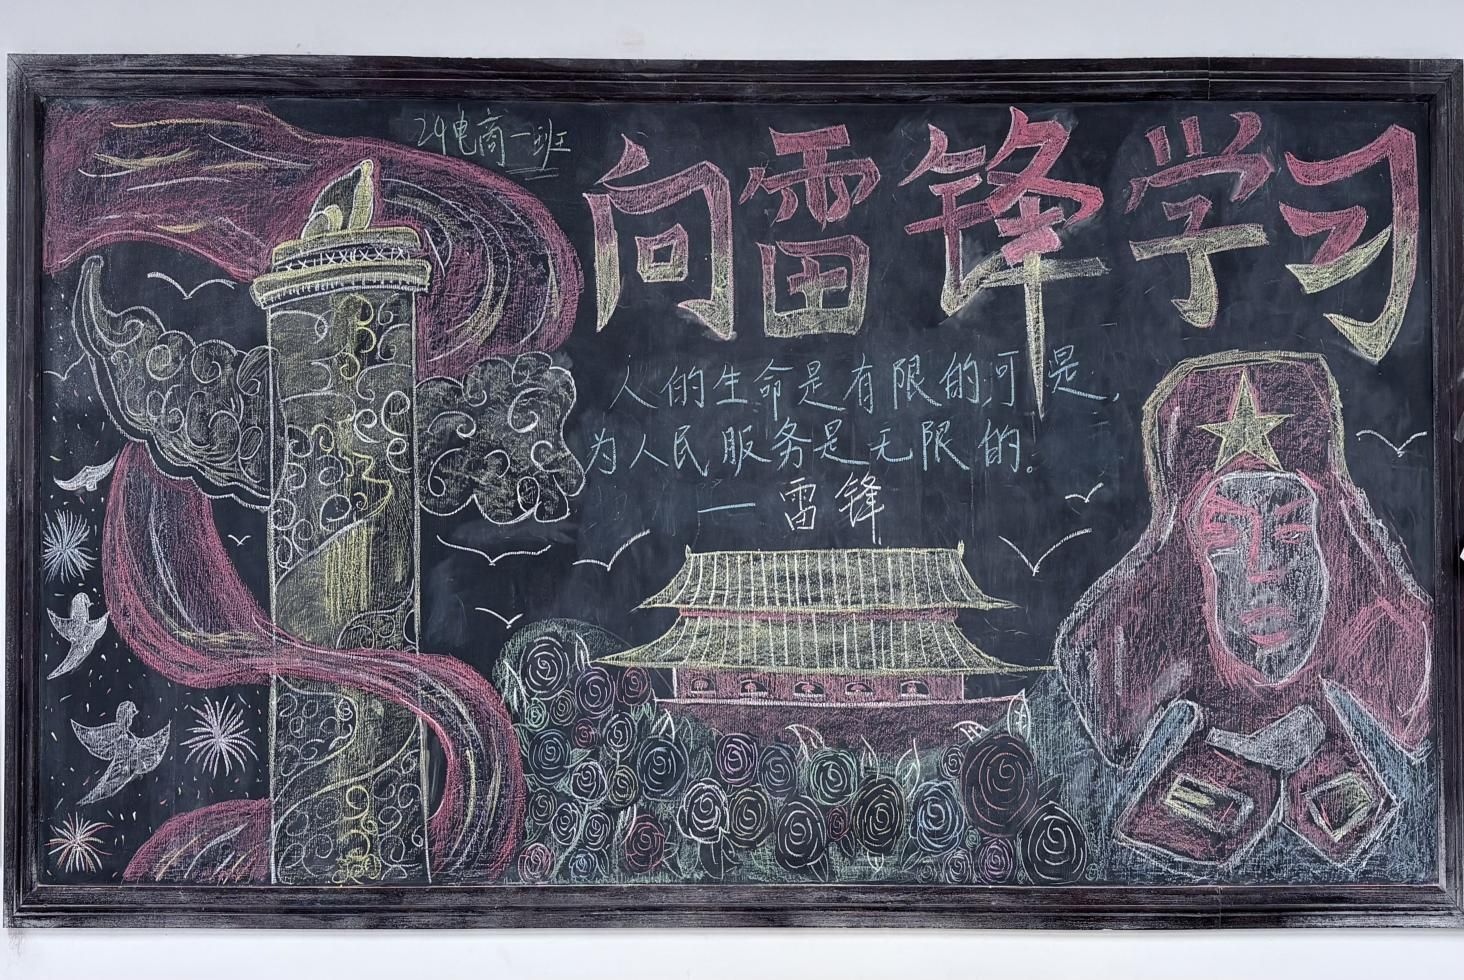 24电商一班
向雷锋学习
人的生命是有限的,可是,
为人民服务是无限的。
—雷锋